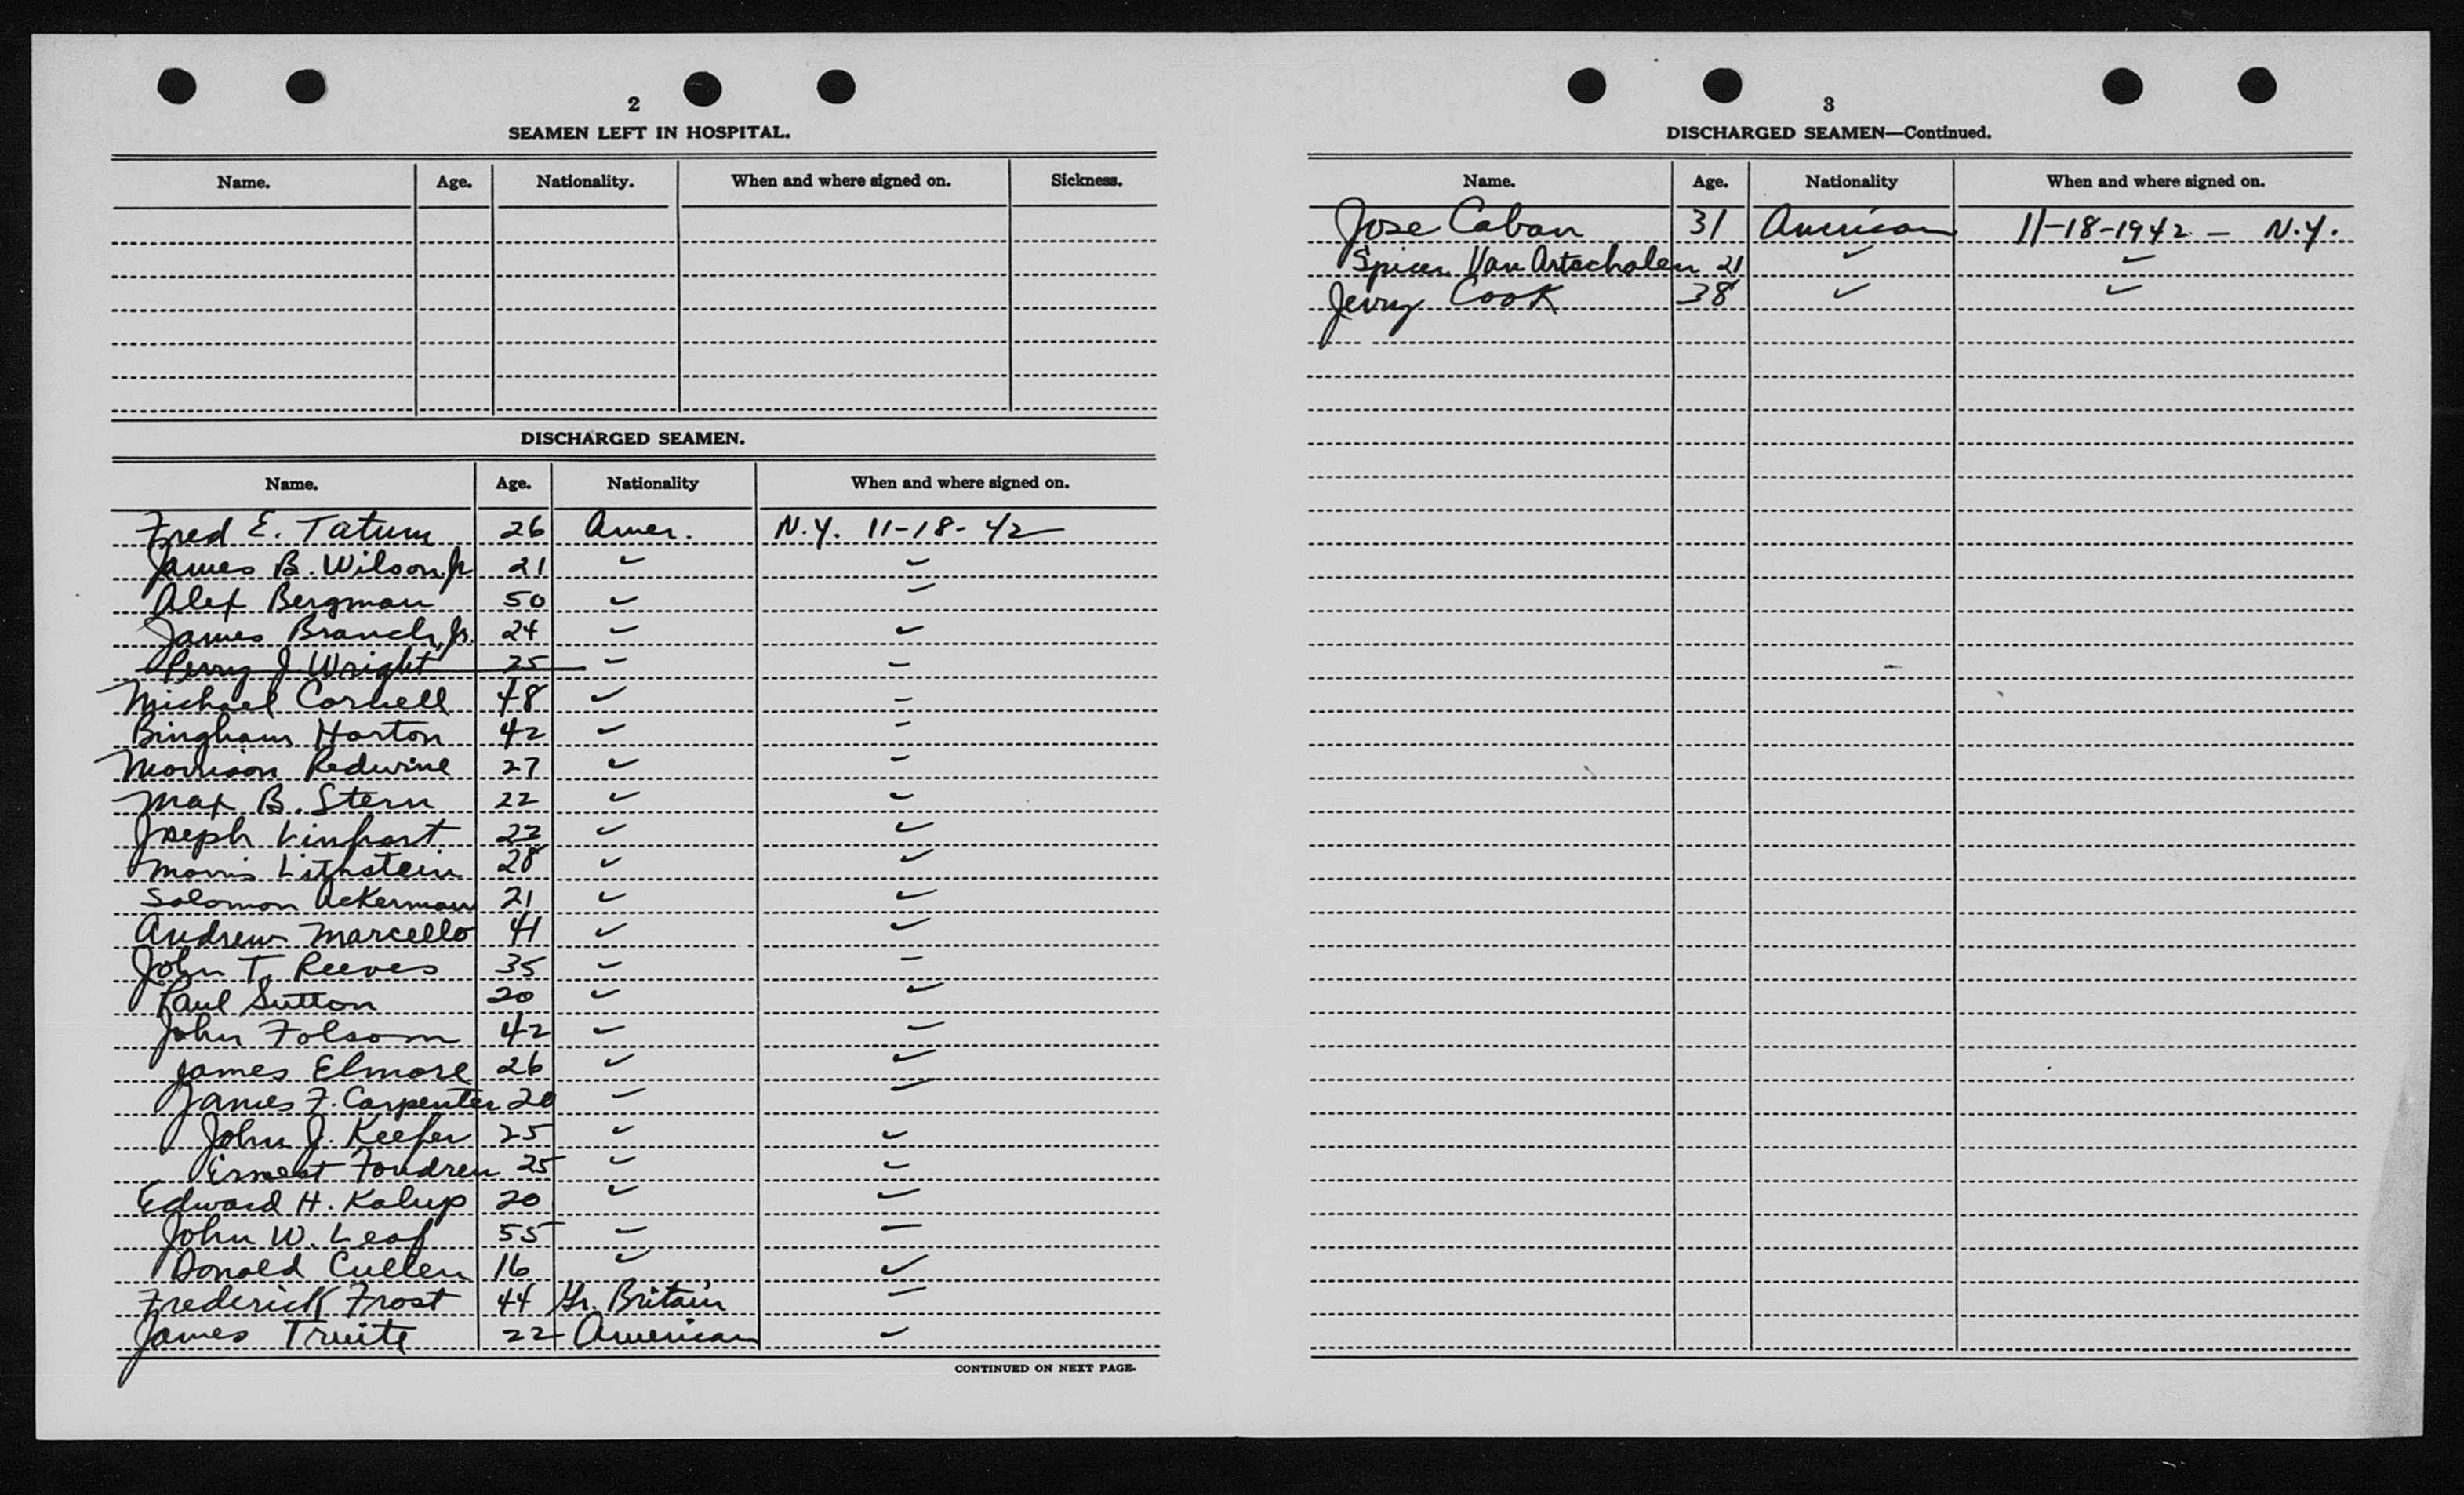 2
SEAMEN LEFT IN HOSPITAL.
Name. Age. Nationality. When and where signed on. Sickness.
DISCHARGED SEAMEN.
Name. Age. Nationality When and where signed on.
Fred E. Tatum 26 Amer. N.Y. 11-18-42
James B. Wilson, Jr 21 ✓ ✓
Alex Bergman 50 ✓ ✓
James Branch, Jr. 24 ✓ ✓
Perry J Wright 25 ✓ ✓
Michael Cornell 48 ✓ ✓
Bingham Horton 42 ✓ ✓
Morrison Redwine 27 ✓ ✓
Max B. Stern 22 ✓ ✓
Joseph Linhart 22 ✓ ✓
Morris Lithstein 28 ✓ ✓
Solomon Ackerman 21 ✓ ✓
Andrew Marcello 41 ✓ ✓
John T. Reeves 35 ✓ ✓
Paul Sutton 20 ✓ ✓
John Folsom 42 ✓ ✓
James Elmore 26 ✓ ✓
James F. Carpenter 20 ✓ ✓
John J. Keefer 25 ✓ ✓
Ernest Fondren 25 ✓ ✓
Edward H. Kalup 20 ✓ ✓
John W. Leaf 55 ✓ ✓
Donald Cullen 16 ✓ ✓
Frederick Frost 44 Gr. Britain ✓
James Truite 22 American ✓
CONTINUED ON NEXT PAGE.
3
DISCHARGED SEAMEN—Continued.
Name. Age. Nationality When and where signed on.
Jose Caban 31 American 11-18-1942 - N.Y.
Spicer Van Artschalen 21 ✓ ✓
Jerry Cook 38 ✓ ✓